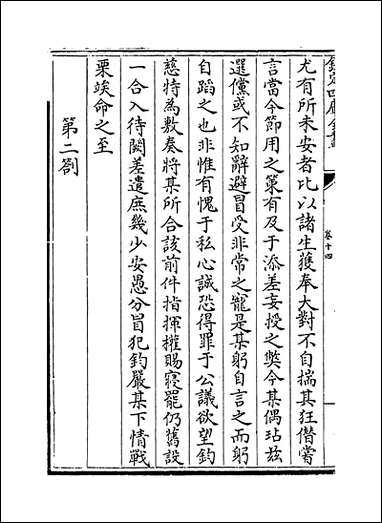 欽定四庫全書
卷十四
尤有所未安者比以諸生獲奉大對不自揣其狂僭嘗
言當今節用之策有及于添差妄授之獘今某偶玷兹
選儻或不知辭避冒受非常之寵是某躬自言之而躬
自蹈之也非惟有愧于私心誠恐得罪于公議欲望鈞
慈特為敷奏將某所合該前件指揮權賜寢罷仍舊設
一合入待闕差遣庶幾少安愚分冒犯鈞嚴某下情戰
栗竢命之至
第二劄